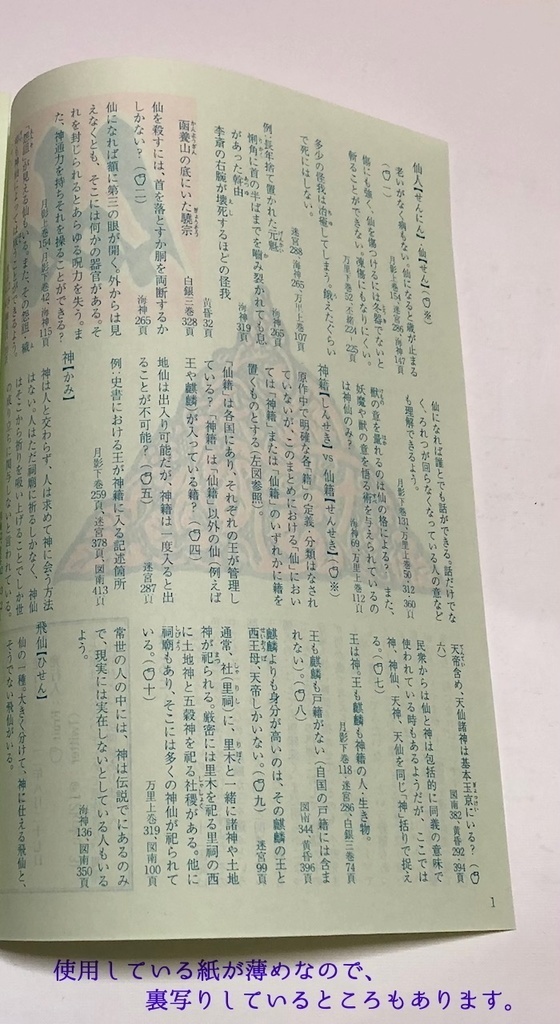 仙人【せんにん】・仙【せん】
老いがなく病もない。仙になると歳が止まる
月影上巻154 迷宮286 海神147頁
傷にも強く、仙を傷つけるには冬器でないと
斬ることができない。凍傷にもなりにくい。
万里下巻52 丕緒224-225頁
多少の怪我は治癒してしまう。餓えたぐらい
で死にはしない。
迷宮288 海神265 万里上巻107頁
例:長年捨て置かれた元魁
海神265頁
懶角に首の半ばまでを噛み裂かれても息
があった斡由
海神319頁
李斎の右腕が壊死するほどの怪我
黄昏32頁
函養山の底にいた驍宗
白銀三巻328頁
仙を殺すには、首を落とすか胴を両断するか
しかない?
海神265頁
仙になれば額に第三の眼が開く。外からは見
えなくとも、そこには何かの器官がある。そ
れを封じられるとあらゆる呪力を失う。ま
た、神通力を持ちそれを操ることができる?
月影上巻154 月影下巻42 海神115頁
仙になれば誰とでも話ができる。話だけでな
く、ろれつが回らなくなっている人の意など
も理解できるよう。
月影下巻131 万里上巻50・312・360頁
獣の意を量れるのは仙の格による? また、
妖魔や獣の意を悟る術を与えられているの
は神仙のみ?
海神69 万里上巻112頁
神籍【しんせき】vs 仙籍【せんせき】
原作中で明確な各「籍」の定義、分類はなされ
ていないが、このまとめにおける「仙」におい
ては「神籍」または「仙籍」のいずれかに籍を
置くものとする(左図参照)。
「仙籍」は各国にあり、それぞれの王が管理し
ている?「神籍」は「仙籍」以外の仙(例えば
王や麒麟)が入っている籍?
地仙は出入り可能だが、神籍は一度入ると出
ることが不可能?
迷宮287頁
例:史書における王が神籍に入る記述箇所
月影下巻259頁、迷宮378頁、図南413頁
神【かみ】
神は人と交わらず、人は求めて神に会う方法
はない。人はただ祠廟に祈るしかなく、神仙
はそこから祈りを吸い上げることでしか世
天帝含め、天仙諸神は基本玉京にいる?
図南382、黄昏292・394頁
民衆からは仙と神は包括的に同義の意味で
使われている時もあるようだが、ここでは
神、神仙、天神、天仙を同じ「神」括りで捉え
る。
王は神。王も麒麟も神籍の人・生き物。
月影下巻118 迷宮286 白銀三巻74頁
王も麒麟も戸籍がない(自国の戸籍には含ま
れない)。
図南344、黄昏396頁
麒麟よりも身分が高いのは、その麒麟の王と
西王母、天帝しかいない。
迷宮99頁
通常、社(里祠)に、里木と一緒に諸神や土地
神が祀られる。厳密には里木を祀る里祠の西
に土地神と五穀神を祀る社稷がある。他に
祠廟もあり、そこには多くの神仙が祀られて
いる。
万里上巻319 図南100頁
常世の人の中には、神は伝説でにあるのみ
で、現実には実在しないとしている人もいる
よう。
海神136 図南350頁
飛仙【ひせん】
仙の一種。大きく分けて、神に仕える飛仙と、
そうでない飛仙がいる。
1
使用している紙が薄めなので、
裏写りしているところもあります。